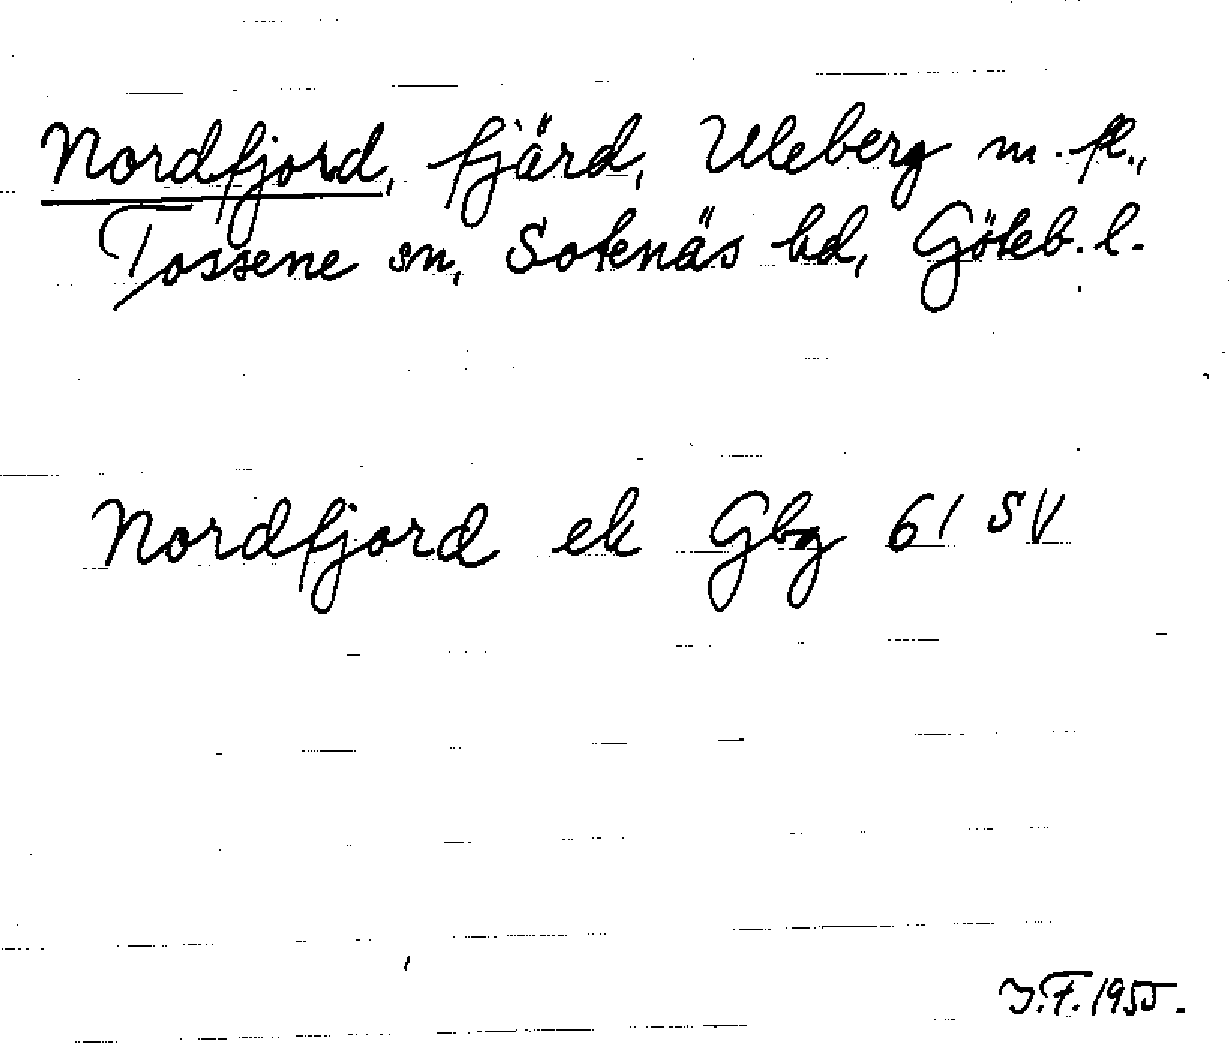 Nordfjord, fjärd, Uleberg m. fl.,
Tossene sn, Sotenäs hd, Göteb. l.
Nordfjord ek Gbg 61 SV
J.F. 1955.